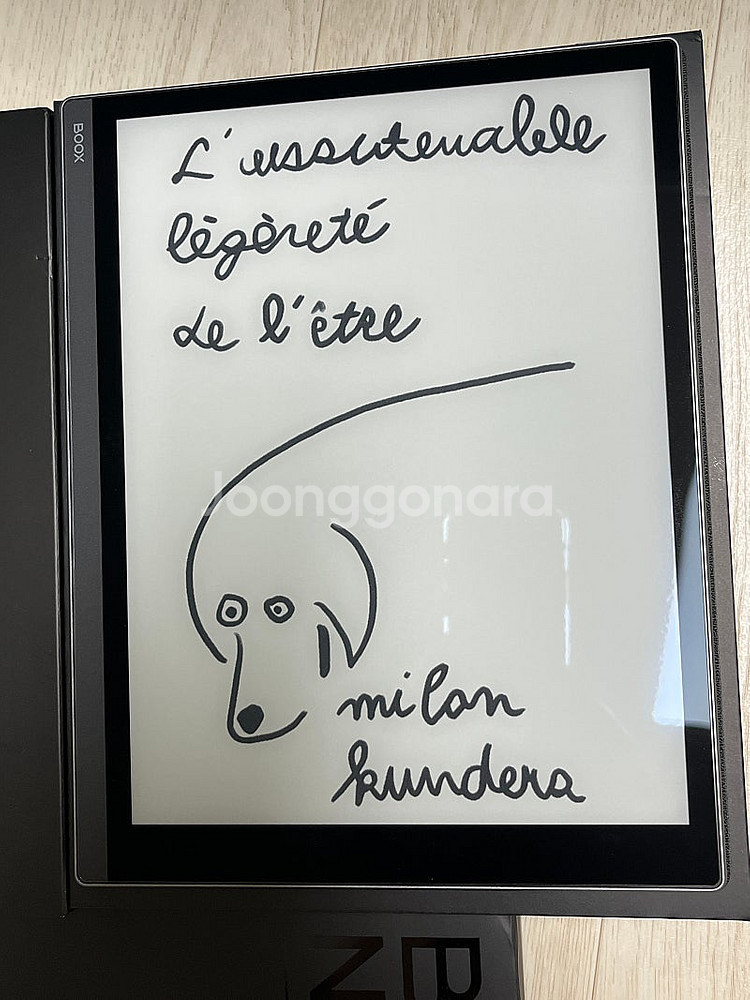 BOOX
L'insoutenable
légèreté
de l'être
Joonggonara
milan
kundera